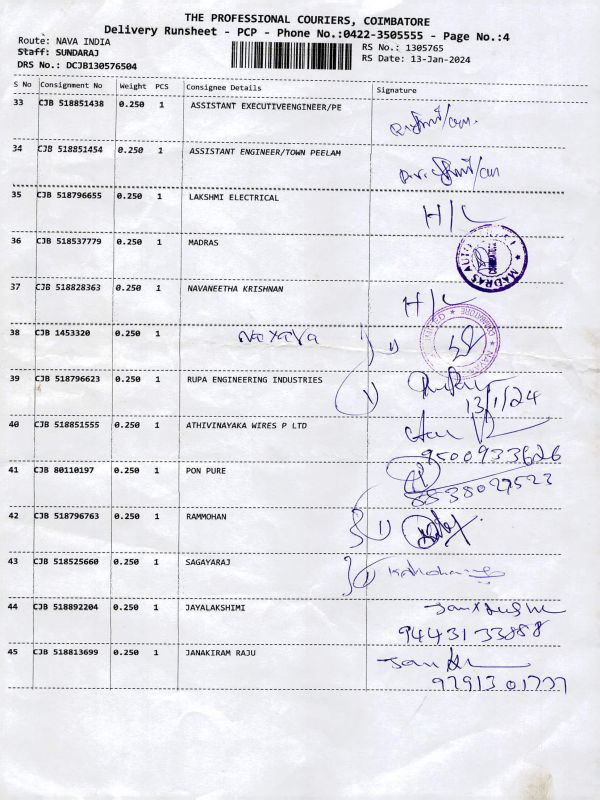 THE PROFESSIONAL COURIERS, COIMBATORE
Delivery Runsheet - PCP - Phone No.:0422-3505555 - Page No.:4
Route: NAVA INDIA
RS No.: 1305765
Staff: SUNDARAJ
RS Date: 13-Jan-2024
DRS No.: DCJB130576504
S No Consignment No Weight PCS Consignee Details Signature
33 CJB 518851438 0.250 1 ASSISTANT EXECUTIVEENGINEER/PE
34 CJB 518851454 0.250 1 ASSISTANT ENGINEER/TOWN PEELAM
35 CJB 518796655 0.250 1 LAKSHMI ELECTRICAL H/L
36 CJB 518537779 0.250 1 MADRAS
MADRAS AUTO
37 CJB 518828363 0.250 1 NAVANEETHA KRISHNAN H/L
38 CJB 1453320 0.250 1
39 CJB 518796623 0.250 1 RUPA ENGINEERING INDUSTRIES
13/1/24
40 CJB 518851555 0.250 1 ATHIVINAYAKA WIRES P LTD
9500933626
41 CJB 80110197 0.250 1 PON PURE
8538027523
42 CJB 518796763 0.250 1 RAMMOHAN
43 CJB 518525660 0.250 1 SAGAYARAJ
44 CJB 518892204 0.250 1 JAYALAKSHIMI
9443133888
45 CJB 518813699 0.250 1 JANAKIRAM RAJU